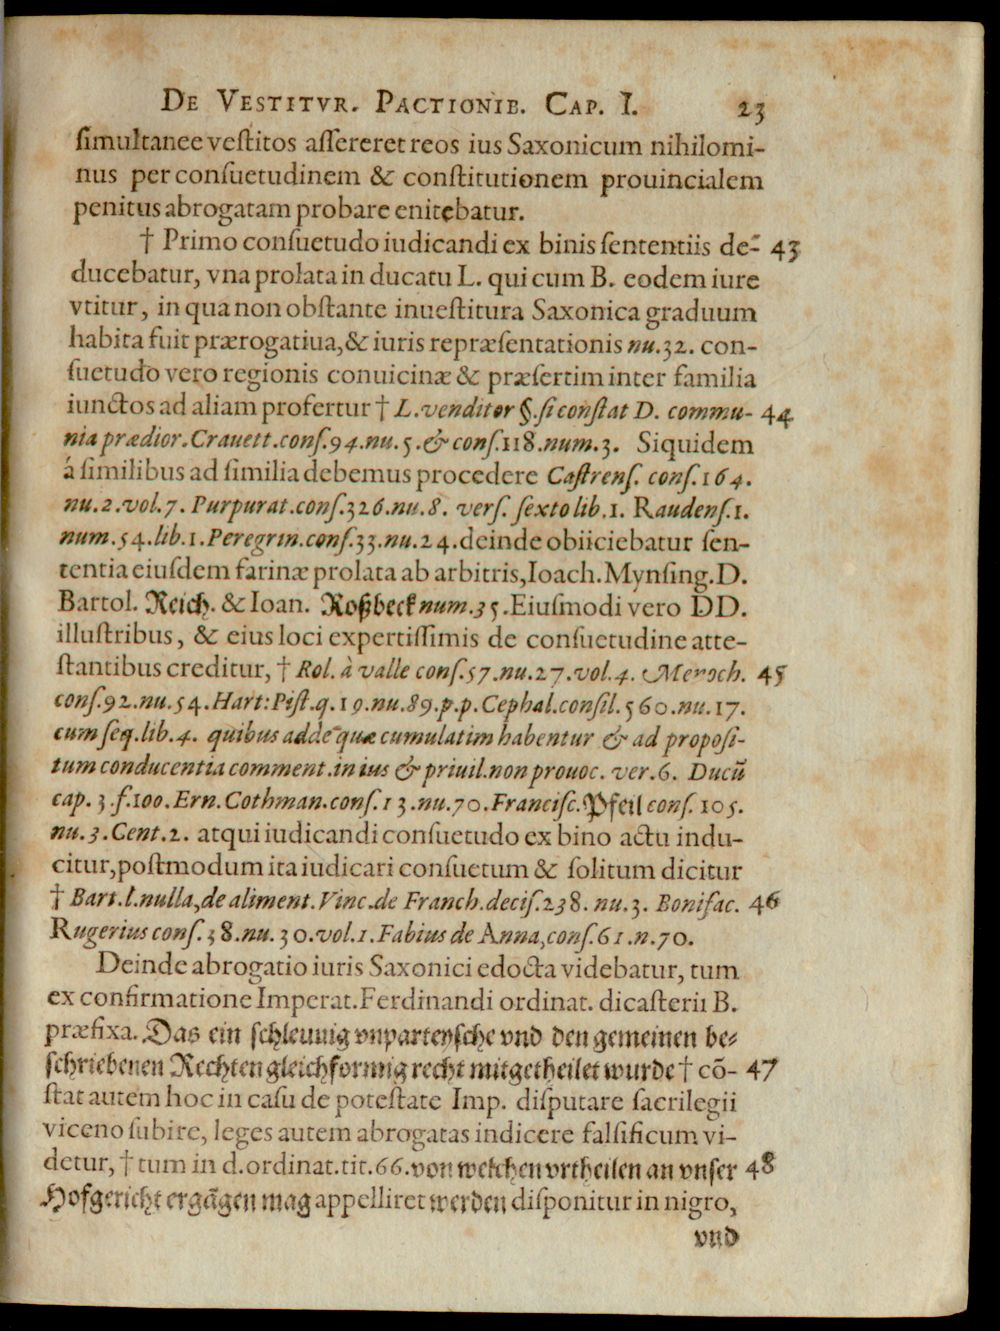 De Vestitvr. Pactionib. Cap. I. 23
simultanee vestitos assereret reos ius Saxonicum nihilomi-
nus per consuetudinem & constitutionem prouincialem
penitus abrogatam probare enitebatur.
† Primo consuetudo iudicandi ex binis sententiis de- 43
ducebatur, vna prolata in ducatu L. qui cum B. eodem iure
vtitur, in qua non obstante inuestitura Saxonica graduum
habita fuit prærogatiua, & iuris repræsentationis nu. 32. con-
suetudo vero regionis conuicinæ & præsertim inter familia
iunctos ad aliam profertur † L. venditor §. si constat D. commu- 44
nia prædior. Crauett. cons. 94. nu. 5. & cons. 118. num. 3. Siquidem
á similibus ad similia debemus procedere Castrens. cons. 164.
nu. 2. vol. 7. Purpurat. cons. 326. nu. 8. vers. sexto lib. 1. Raudens. 1.
num. 54. lib. 1. Peregrin. cons. 33. nu. 24. deinde obiiciebatur sen-
tentia eiusdem farinæ prolata ab arbitris, Ioach. Mynsing. D.
Bartol. Reich. & Ioan. Roßbeck num. 35. Eiusmodi vero DD.
illustribus, & eius loci expertissimis de consuetudine atte-
stantibus creditur, † Rol. à valle cons. 57. nu. 27. vol. 4. Meroch. 45
cons. 92. nu. 54. Hart: Pist. q. 19. nu. 89. p. p. Cephal. consil. 560. nu. 17.
cum seq. lib. 4. quibus adde quæ cumulatim habentur & ad proposi-
tum conducentia comment. in ius & priuil. non prouoc. ver. 6. Ducū
cap. 3. f. 100. Ern. Cothman. cons. 13. nu. 70. Francisc. Pfeil cons. 105.
nu. 3. Cent. 2. atqui iudicandi consuetudo ex bino actu indu-
citur, postmodum ita iudicari consuetum & solitum dicitur
† Bart. l. nulla, de aliment. Vinc. de Franch. decis. 238. nu. 3. Bonifac. 46
Rugerius cons. 38. nu. 30. vol. 1. Fabius de Anna, cons. 61. n. 70.
Deinde abrogatio iuris Saxonici edocta videbatur, tum
ex confirmatione Imperat. Ferdinandi ordinat. dicasterii B.
præfixa. Das ein schleunig vnparteysche vnd den gemeinen be-
schriebenen Rechten gleichformig recht mitgetheilet wurde † cō- 47
stat autem hoc in casu de potestate Imp. disputare sacrilegii
vice no subire, leges autem abrogatas indicere falsificum vi-
detur, † tum in d. ordinat. tit. 66. von welchen vrtheilen an vnser 48
Hofgericht ergāgen mag appelliret werden disponitur in nigro,
vnd